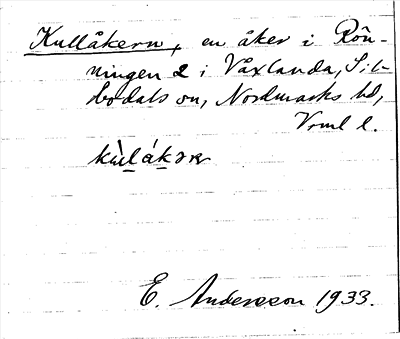 Kullåkern, en åker i Rön-
ningen 2 i Växlanda, Sil-
bodals sn, Nordmarks hd,
Vrml l.
kùlákər
E. Andersson 1933.